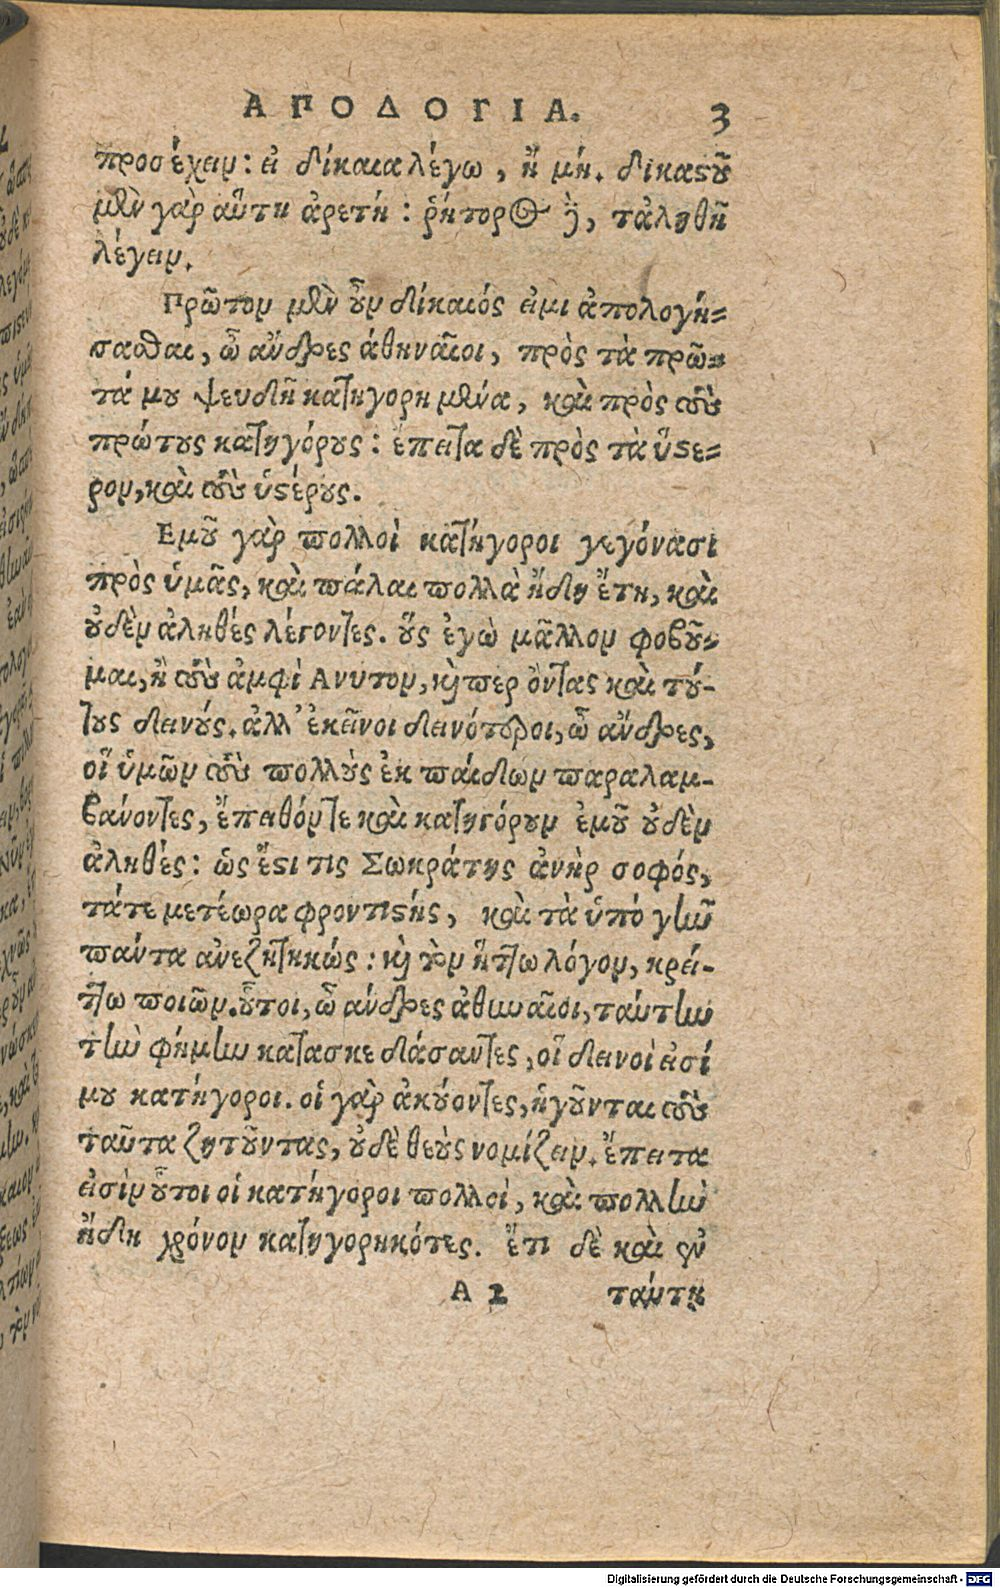 ΑΠΟΔΟΓΙΑ. 3
προσέχειν: εἰ δίκαια λέγω, ἢ μή. δικαςοῦ
μὲν γὰρ αὕτη ἀρετή: ῥήτορος δὲ, τἀληθῆ
λέγειν.
Πρῶτον μὲν οὖν δίκαιός εἰμι ἀπολογή=
σασθαι, ὦ ἄνδρες ἀθηναῖοι, πρὸς τὰ πρῶ=
τά μου ψευδῆ κατηγορημένα, καὶ πρὸς τοὺς
πρώτους κατηγόρους: ἔπειτα δὲ πρὸς τὰ ὕςε=
ρον, καὶ τοὺς ὑςέρους.
Εμοῦ γὰρ πολλοὶ κατήγοροι γεγόνασι
πρὸς ὑμᾶς, καὶ πάλαι πολλὰ ἤδη ἔτη, καὶ
οὐδὲν ἀληθές λέγοντες. οὕς ἐγὼ μᾶλλον φοβοῦ=
μαι, ἢ τοὺς ἀμφὶ Ανυτον, καίπερ ὄντας καὶ τού-
τους δεινούς. ἀλλ' ἐκεῖνοι δεινότεροι, ὦ ἄνδρες,
οἵ ὑμῶν τοὺς πολλοὺς ἐκ παίδων παραλαμ-
βάνοντες, ἔπειθόν τε καὶ κατηγόρουν ἐμοῦ οὐδὲν
ἀληθές: ὡς ἔςι τις Σωκράτης ἀνὴρ σοφός,
τά τε μετέωρα φροντιςής, καὶ τὰ ὑπό γῆν
πάντα ἀνεζητηκώς: καὶ τὸν ἥττω λόγον, κρεί-
ττω ποιῶν. οὗτοι, ὦ άνδρες ἀθηναῖοι, ταύτην
τὴν φήμην κατασκεδάσαντες, οἱ δεινοὶ εἰσί
μου κατήγοροι. οἱ γὰρ ἀκούοντες, ἡγοῦνται τοὺς
ταῦτα ζητοῦντας, οὐδὲ θεοὺς νομίζειν. ἔπειτα
εἰσὶν οὗτοι οἱ κατήγοροι πολλοὶ, καὶ πολλὺν
ἤδη χρόνον κατηγορηκότες. ἔτι δὲ καὶ ἐν
Α 2 ταύτῃ
Digitalisierung gefördert durch die Deutsche Forschungsgemeinschaft - DFG